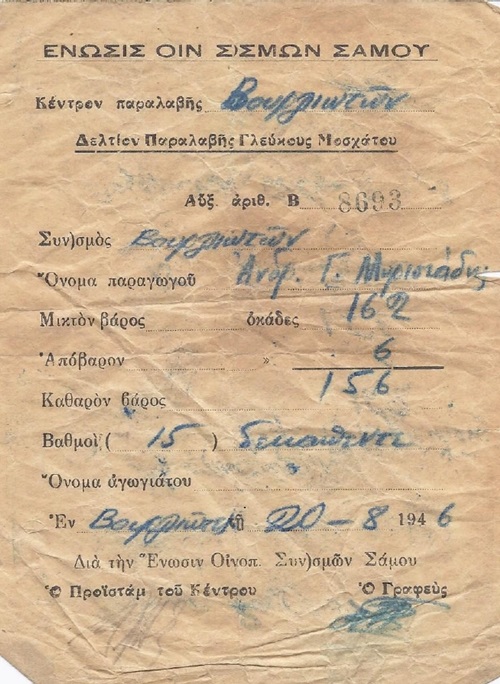 ΕΝΩΣΙΣ ΟΙΝ ΣΊΣΜΩΝ ΣΑΜΟΥ
Κέντρον παραλαβῆς Βουρλιωτῶν
Δελτίον Παραλαβῆς Γλεύκους Μοσχάτου
Αὔξ. ἀριθ. Β 8693
Συν)σμὸς Βουρλιωτῶν
Ὄνομα παραγωγοῦ Ἀνδρ. Γ.
Μικτὸν βάρος ὀκάδες 162
Ἀπόβαρον » 6
Καθαρὸν βάρος 156
Βαθμοὶ ( 15 ) δεκαπέντε
Ὄνομα ἀγωγιάτου
Ἐν τῇ 20-8 1946
Διὰ τὴν Ἕνωσιν Οἰνοπ. Συν)σμῶν Σάμου
Ὁ Προϊστάμ τοῦ Κέντρου Ὁ Γραφεὺς